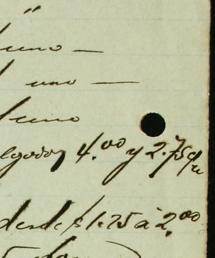 "
uno —
uno —
uno
lgodon 4.00 y 2.75 c/u
desde $1.25 á 2.00